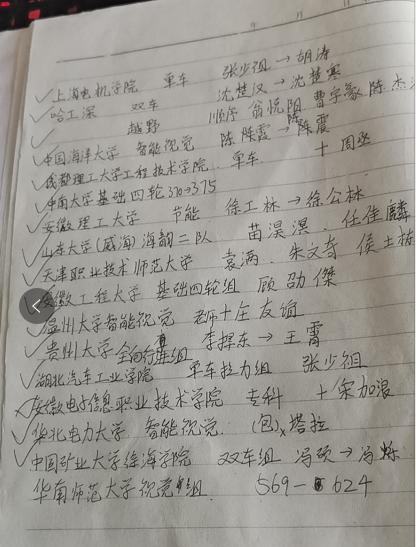 年 月
✓上海电机学院 单车 张少祖→胡涛
✓哈工深 双车 沈楚汉→沈楚寒
✓ 越野 顺序 翁悦阳 曹宇豪 陈杰
✓中国海洋大学 智能视觉 陈陈霞→陈震
✓成都理工大学工程技术学院 单车 十 周丞
✓中南大学基础四轮 370→375
✓安徽理工大学 节能 徐工林→徐公林
✓山东大学(威海)海韵二队 苗淏溟 任佳麟
✓天津职业技术师范大学 袁满 朱文奇 侯士栋
安徽工程大学 基础四轮组 顾劭傑
✓温州大学智能视觉 老师十庄友谊
✓贵州大学全向行进组 李捍东→王霄
✓湖北汽车工业学院 单车拉力组 张少祖
安徽电子信息职业技术学院 专科 十宋加浪
✓华北电力大学 智能视觉 (包)塔拉
✓中国矿业大学徐海学院 双车组 冯硕→冯烁
华南师范大学视觉组 569-624